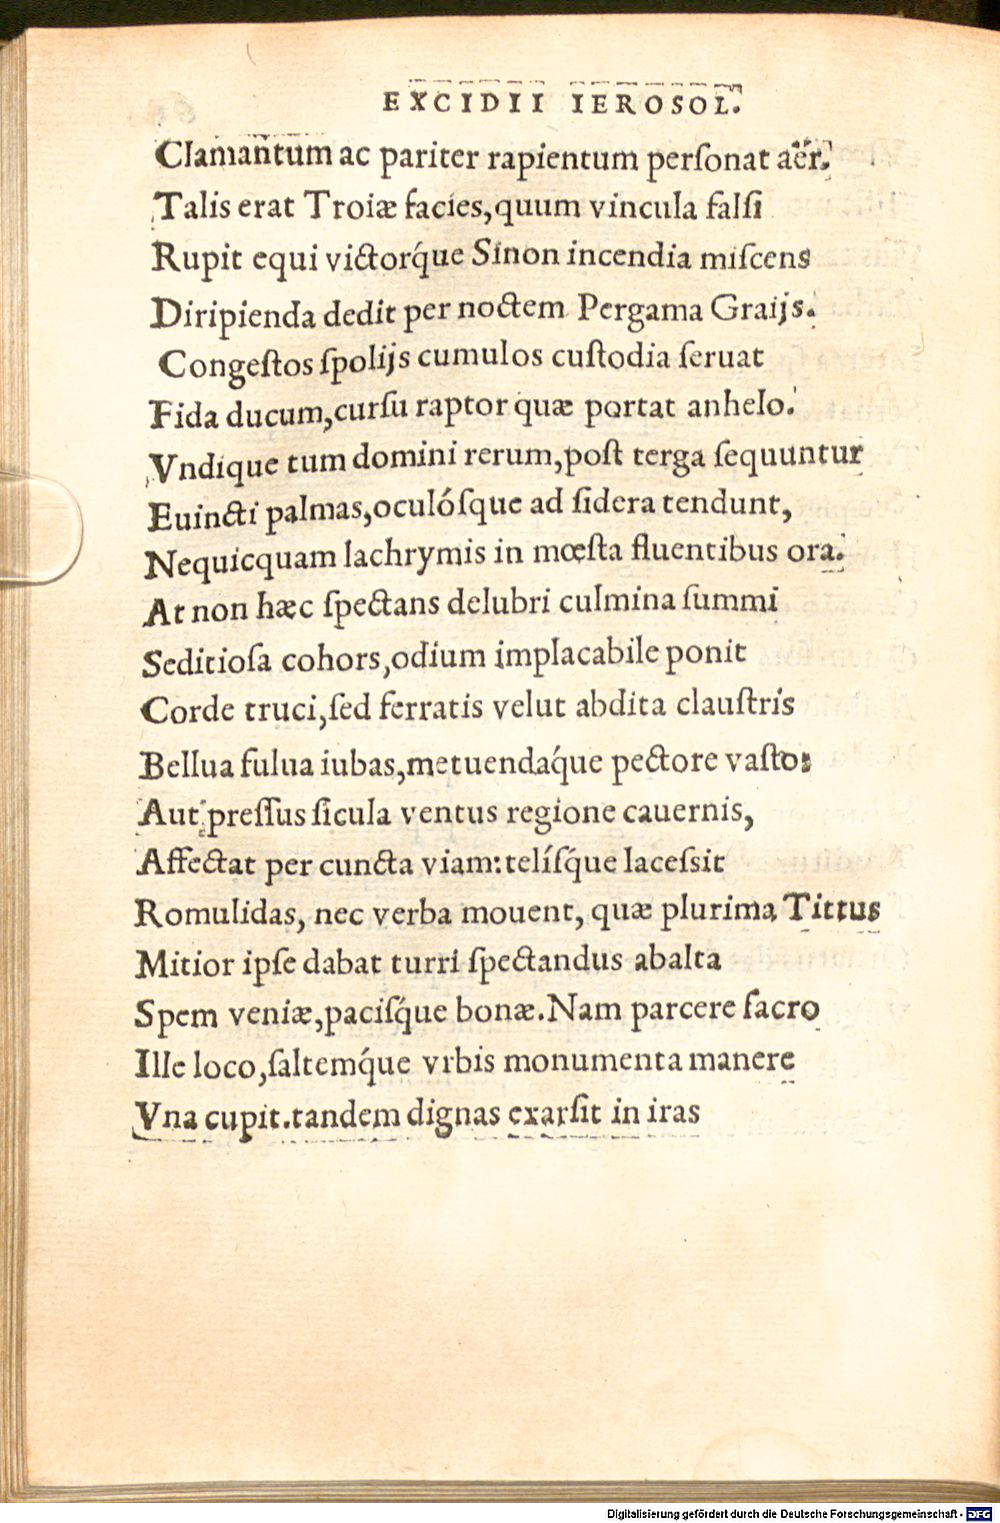 EXCIDII IEROSOL.
Clamantum ac pariter rapientum perſonat aër.
Talis erat Troiæ facies,quum vincula falſi
Rupit equi victorq́ue Sinon incendia miſcens
Diripienda dedit per noctem Pergama Graijs.
Congeſtos ſpolijs cumulos cuſtodia ſeruat
Fida ducum,curſu raptor quæ portat anhelo.
Vndique tum domini rerum,poſt terga ſequuntur
Euincti palmas,oculóſque ad ſidera tendunt,
Nequicquam lachrymis in mœſta fluentibus ora.
At non hæc ſpectans delubri culmina ſummi
Seditioſa cohors,odium implacabile ponit
Corde truci,ſed ferratis velut abdita clauſtris
Bellua fulua iubas,metuendaq́ue pectore vaſto:
Aut preſſus ſicula ventus regione cauernis,
Affectat per cuncta viam:telíſq́ue laceſsit
Romulidas, nec verba mouent, quæ plurima Tittus
Mitior ipſe dabat turri ſpectandus abalta
Spem veniæ,paciſq́ue bonæ.Nam parcere ſacro
Ille loco,ſaltemq́ue vrbis monumenta manere
Vna cupit.tandem dignas exarſit in iras
Digitalisierung gefördert durch die Deutsche Forschungsgemeinschaft - DFG